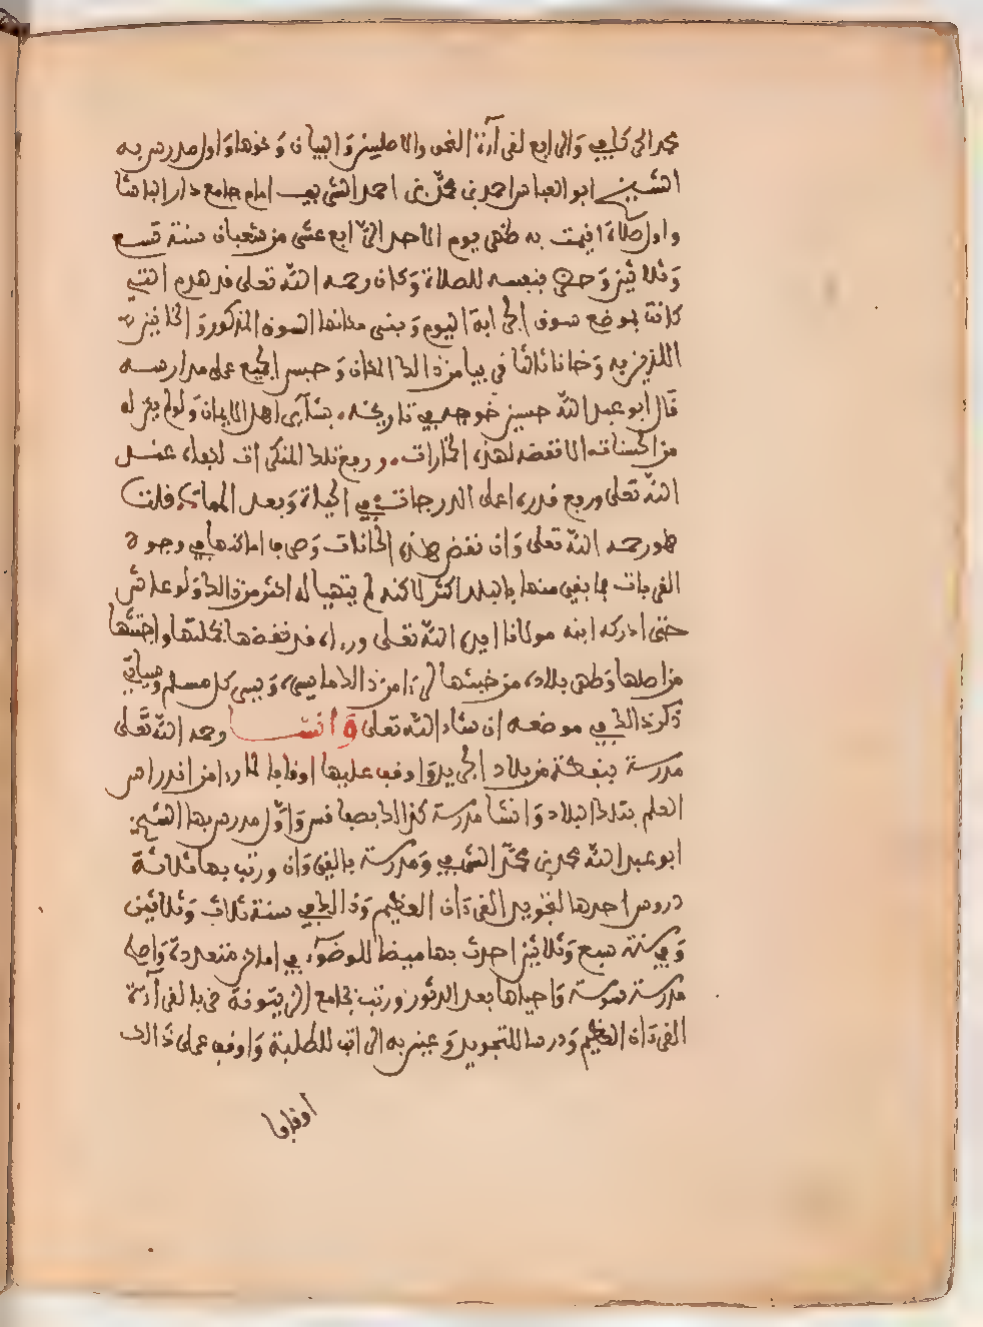 محمد الحركافي والرابع لقراءة النحو والاصلين والبيان ونحوها واول مدرس به
الشيخ ابو العباس احمد بن محمد بن احمد الشريف امام جامع دار الباشا
واول صلاة اقيمت به ظهر يوم الاحد الرابع عشر من شعبان سنة تسع
وثلاثين وحضر بنفسه للصلاة وكان رحمه الله تعلى قد هدم التي
كانت بموضع سوق الجرابة اليوم وبنى مكانها السوق المذكور والخانين
اللذين به وخانا ثالثا قريبا من ذالك المكان وحبس الجميع على مدارسه
قال ابو عبد الله حسين خوجه في تاريخه بشاير اهل الايمان ولو لم يكن له
من الحسنات الا نقضه لهذه الخمارات ورفع تلك المنكرات لكفاه عند
الله تعلى ورفع قدره اعلى الدرجات في الحياة وبعد الممات قلت
هو رحمه الله تعلى وان نقض هذه الخانات وصرف اماكنها في وجوه
القربات فما بقي منها بالبلد اكثر لاكنه لم يتهيا له اكثر من ذالك ولو عاش
حتى ادركه ابنه مولانا ايده الله تعلى وراه قد نقضها بجملتها واجتثها
من اصلها وطهر بلاده من خبثها لراى من ذالك ما يسره ويسر كل مسلم وسياتي
ذكر ذالك في موضعه ان شاء الله تعلى وانشـا رحمه الله تعلى
مدرسة بنفطة من بلاد الجريد واوقف عليها اوقافا لما راى من اندراس
العلم بتلك البلاد وانشا مدرسة كذالك بصفاقس واول مدرس بها الشيخ
ابو عبد الله محمد بن محمد الشرفي ومدرسة بالقيروان ورتب بها ثلاثة
دروس احدها لتجويد القرءان العظيم وذالك في سنة ثلاث وثلاثين
وفي سنة سبع وثلاثين احدث بها ميضا للوضوء في اماكن متعددة واصلح
مدرسة سوسة واحياها بعد الدثور ورتب بجامع الزيتونة حزبا لقراءة
القرءان العظيم ودرسا للتجويد وعين به الراتب للطلبة واوقف على ذالك
اوقافا